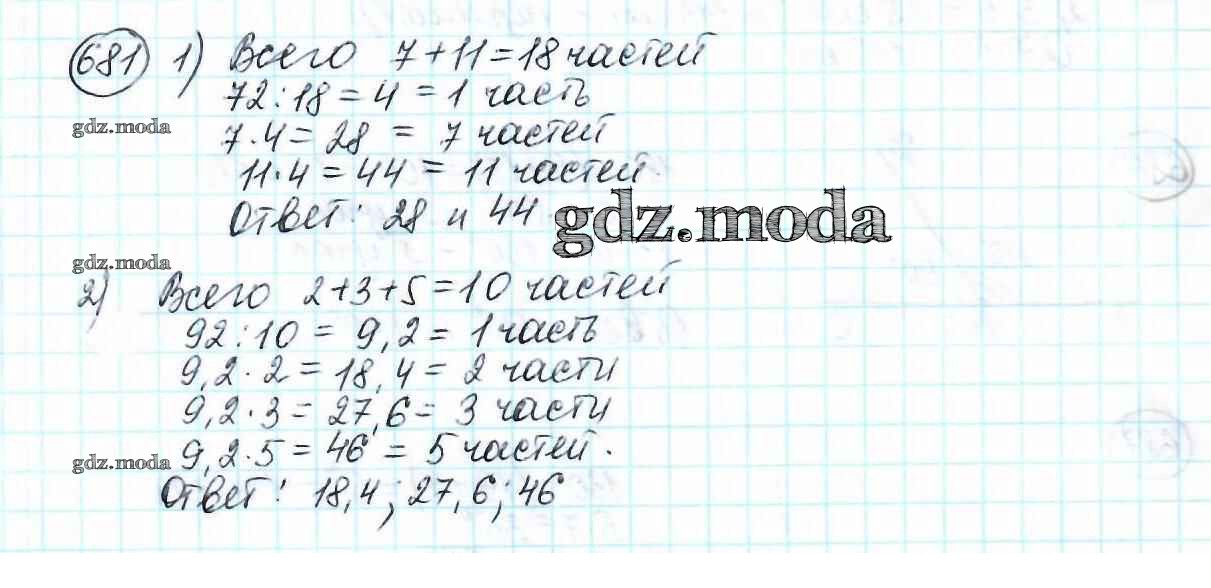 681 1) Всего 7+11=18 частей
72:18=4=1 часть
gdz.moda
7·4=28=7 частей
11·4=44=11 частей.
Ответ: 28 и 44
gdz.moda
gdz.moda
2) Всего 2+3+5=10 частей
92:10=9,2=1 часть
9,2·2=18,4=2 части
9,2·3=27,6=3 части
9,2·5=46=5 частей.
gdz.moda
Ответ: 18,4; 27,6; 46